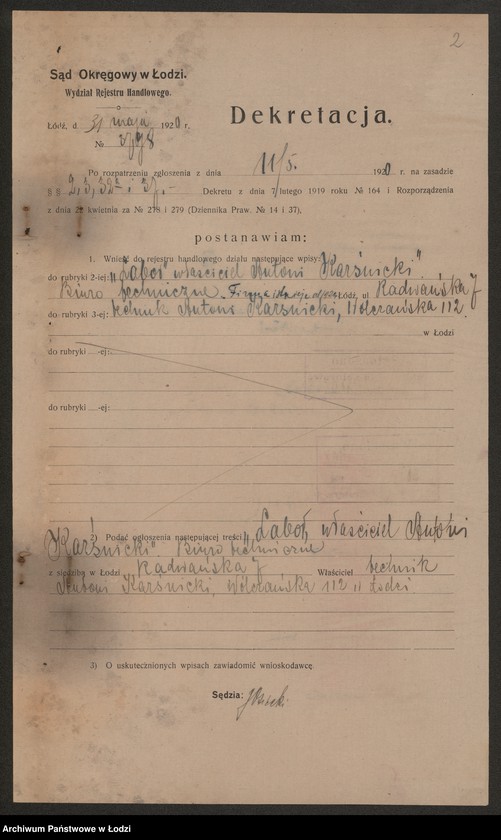 2
Sąd Okręgowy w Łodzi.
Wydział Rejestru Handlowego.
Dekretacja.
Łódź, d. 31 maja 1920 r.
№ 3798
Po rozpatrzeniu zgłoszenia z dnia 11/5. 1920 r. na zasadzie
2, 3, 32 i 37. Dekretu z dnia 7 lutego 1919 roku № 164 i Rozporządzenia
z dnia kwietnia za № 278 i 279 (Dziennika Praw. № 14 i 37),
postanawiam:
1. Wnieść do rejestru handlowego działu następujące wpisy:
do rubryki 2-iej: „Łaboś" właściciel Antoni Karśnicki".
Biuro techniczne. Firma istnieje Łódź, ul Radwańska 7
do rubryki 3-ej: technik Antoni Karśnicki, Wólczańska 112.
w Łodzi
do rubryki -ej:
do rubryki -ej:
2) Podać ogłoszenia następującej treści: „Łaboś, właściciel Antoni
Karśnicki" Biuro techniczne
z siedzibą w Łodzi Radwańska 7 Właściciel technik
Antoni Karśnicki, Wólczańska 112 w Łodzi
3) O uskutecznionych wpisach zawiadomić wnioskodawcę
Sędzia:
Archiwum Państwowe w Łodzi